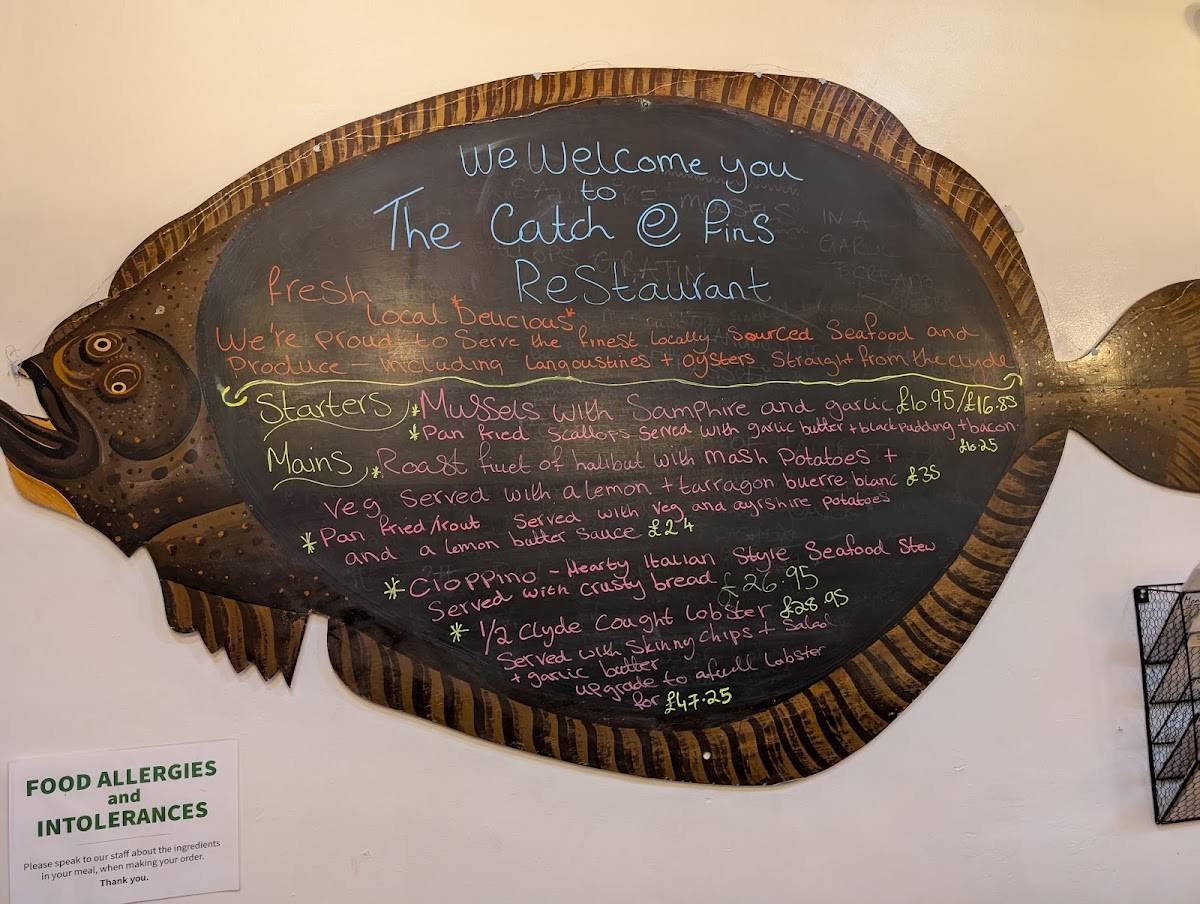 We Welcome you
to
The Catch @ Fins
Restaurant
fresh
Local *Delicious*
We're proud to Serve the finest locally Sourced Seafood and
Produce - including Langoustines + oysters Straight from the clyde
Starters *Mussels with Samphire and garlic £10.95/£16.85
*Pan fried scallops served with garlic butter + black pudding + bacon
£10.25
Mains *Roast fillet of halibut with mash potatoes +
veg served with a lemon + tarragon buerre blanc £35
*Pan fried trout served with veg and ayrshire potatoes
and a lemon butter sauce £24
*Cioppino - Hearty Italian Style Seafood Stew
Served with crusty bread £26.95
*1/2 Clyde Caught lobster £28.95
Served with Skinny chips + Salad
+ garlic butter
upgrade to a full lobster
for £47.25
FOOD ALLERGIES
and
INTOLERANCES
Please speak to our staff about the ingredients
in your meal, when making your order.
Thank you.